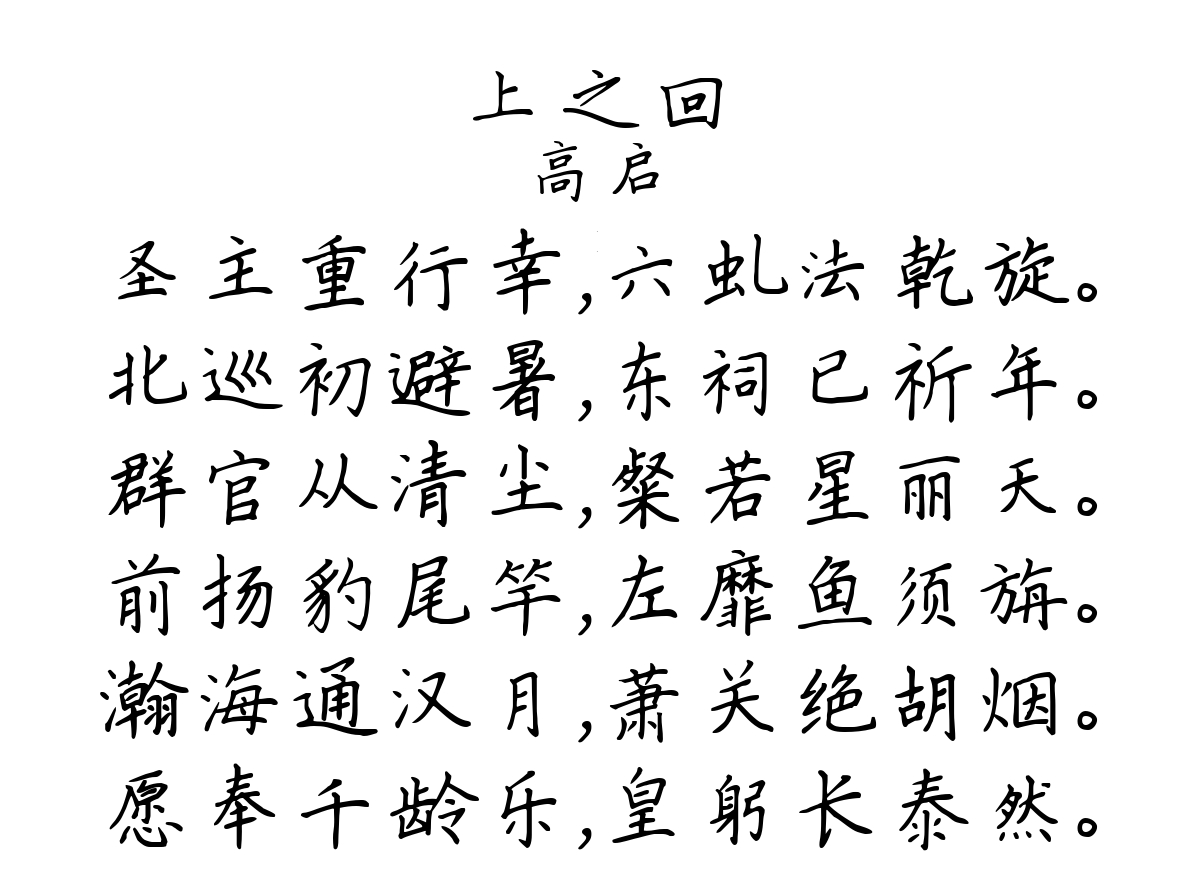 上之回
高启
圣主重行幸,六虬法乾旋。
北巡初避暑,东祠已祈年。
群官从清尘,粲若星丽天。
前扬豹尾竿,左靡鱼须旃。
瀚海通汉月,萧关绝胡烟。
愿奉千龄乐,皇躬长泰然。